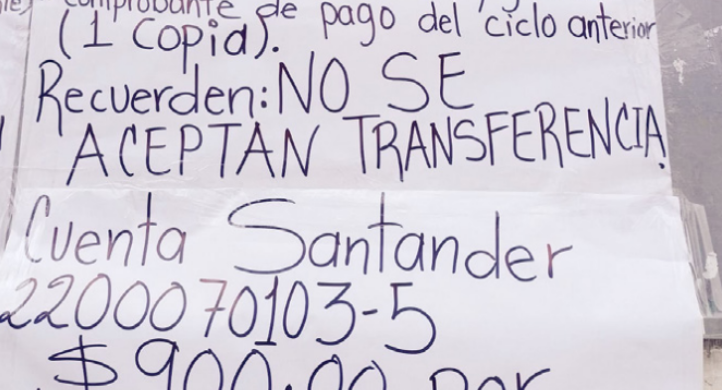 comprobante de pago del ciclo anterior
(1 copia).
Recuerden: NO SE
ACEPTAN TRANSFERENCIA
Cuenta Santander
22000 70103-5
$900.00 por